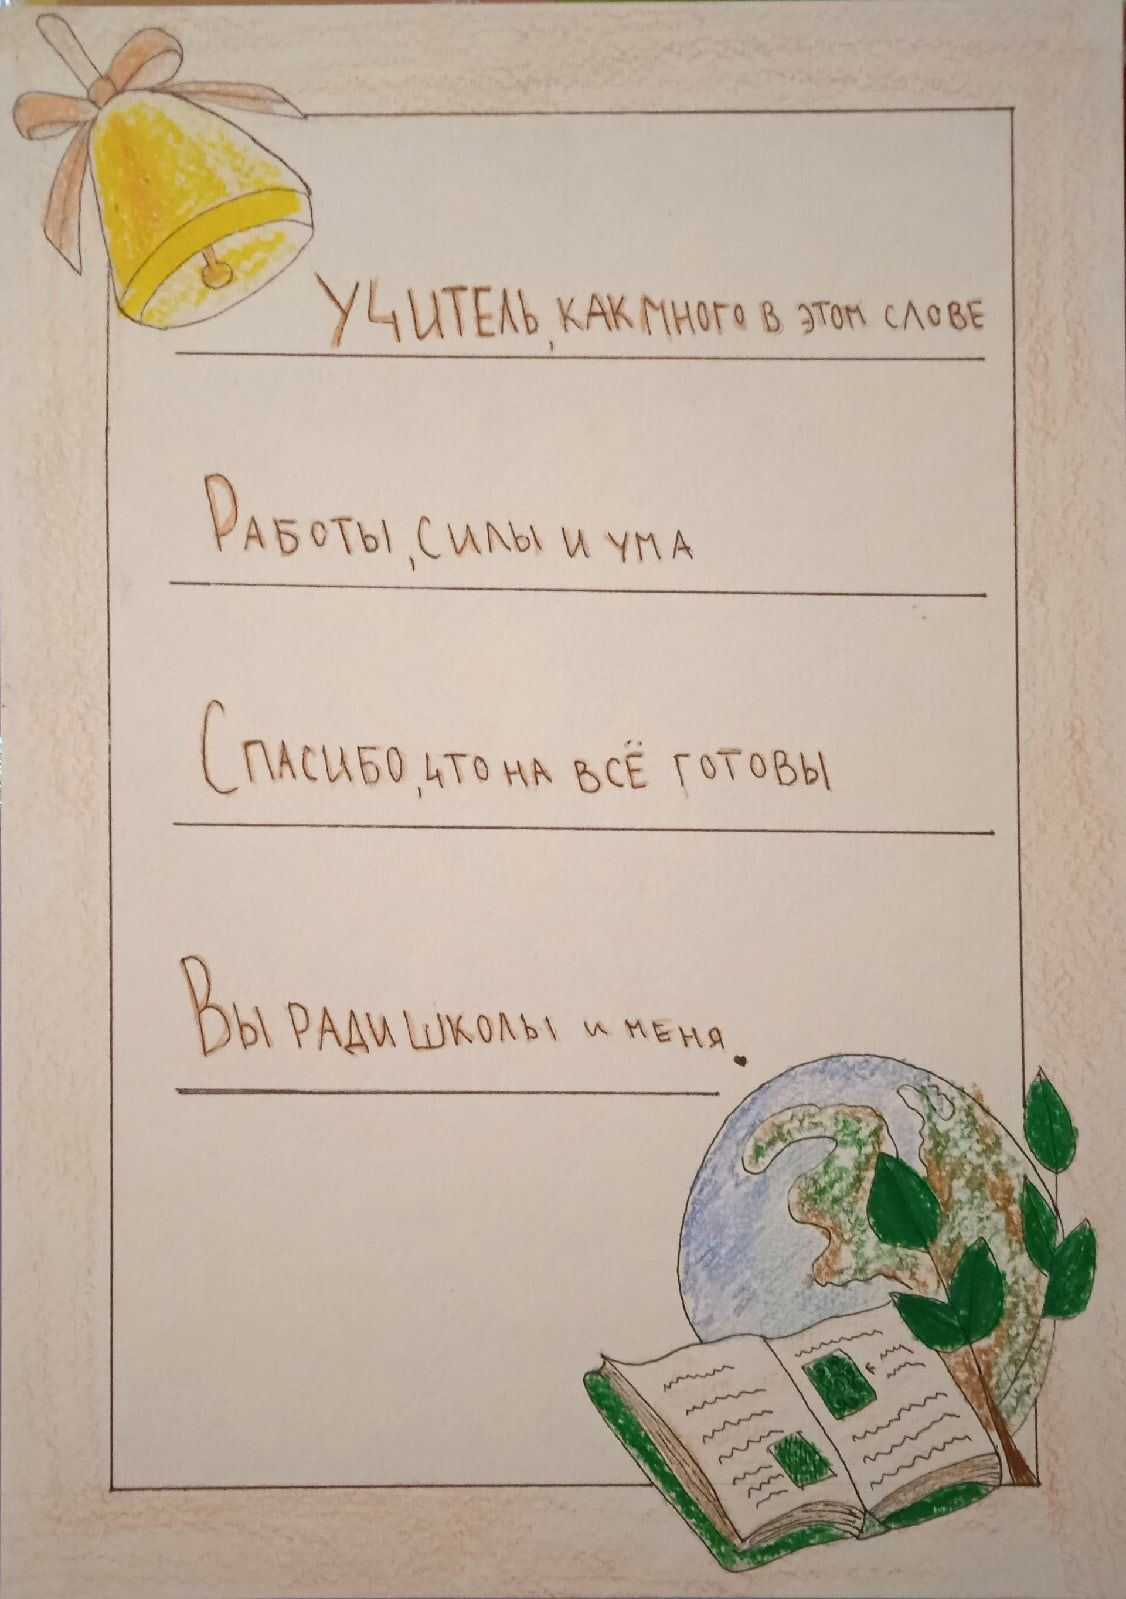 Учитель, как много в этом слове
Работы, силы и ума
Спасибо, что на всё готовы
Вы ради школы и меня.